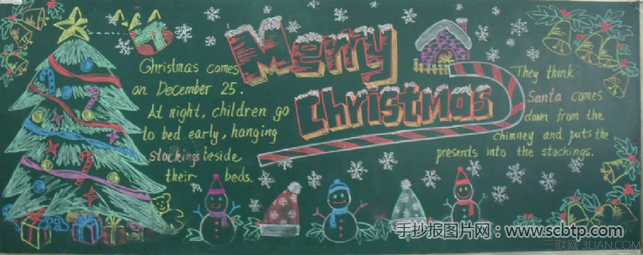 Merry
Christmas
Christmas comes
on December 25.
At night, children go
to bed early, hanging
stockings beside
their beds.
They think
Santa comes
down from the
chimney and puts the
presents into the stockings.
手抄报图片网：www.scbtp.com
三联网 3LIAN.COM